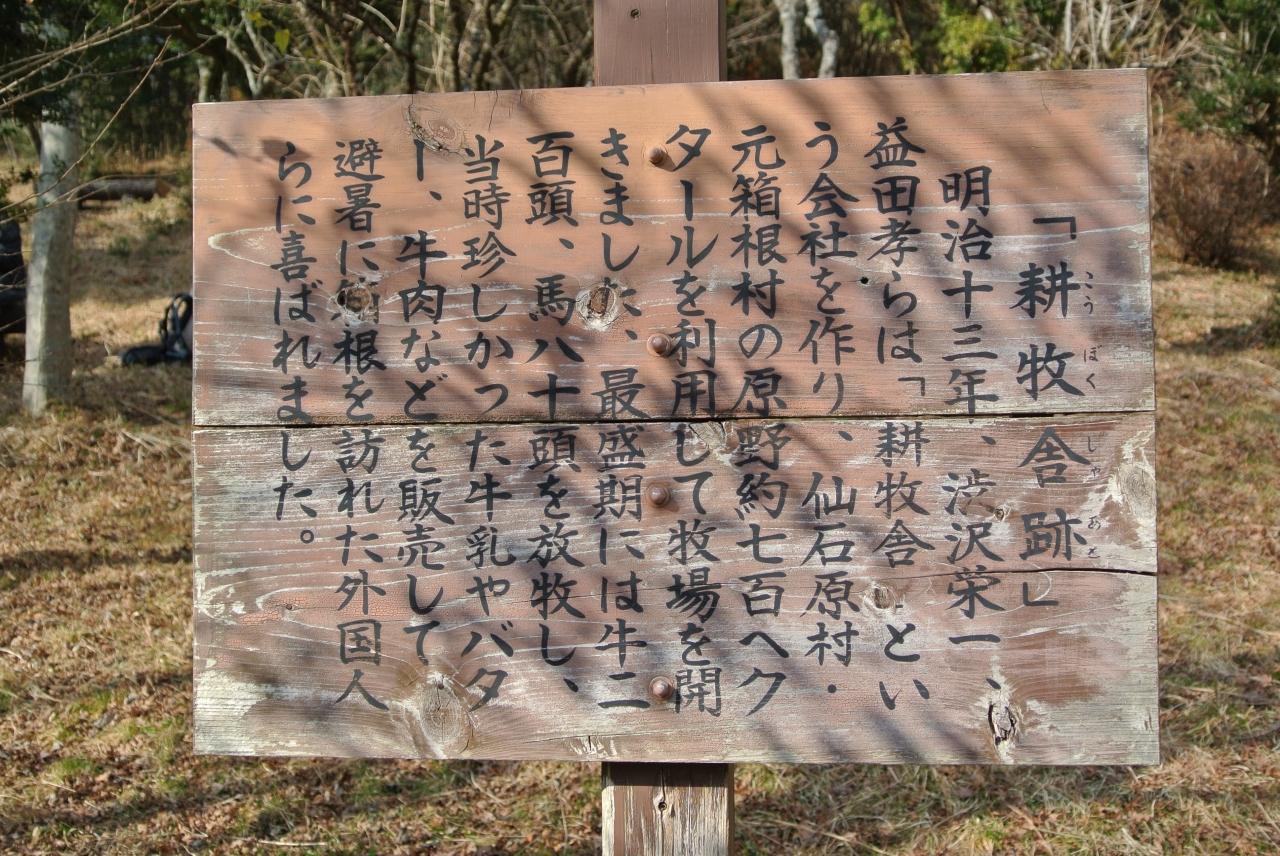 「耕牧舎跡」
こうぼくしゃあと
明治十三年、渋沢栄一、
益田孝らは「耕牧舎」とい
う会社を作り、仙石原村・
元箱根村の原野約七百ヘク
タールを利用して牧場を開
きました、最盛期には牛二
百頭、馬八十頭を放牧し、
当時珍しかった牛乳やバタ
ー、牛肉などを販売して
避暑に箱根を訪れた外国人
らに喜ばれました。